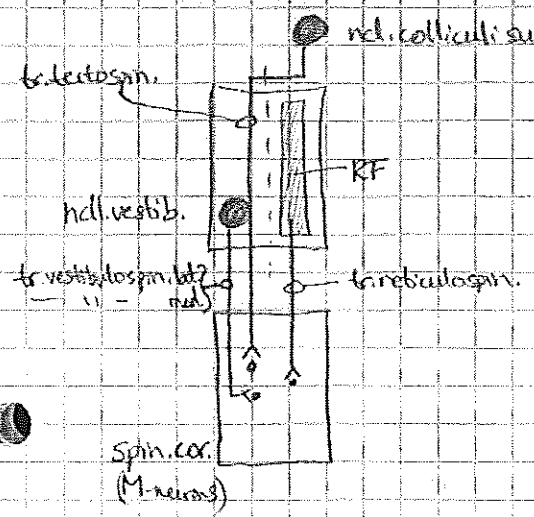 ncl. colliculi su
tr. tectospin.
RF
ncll. vestib.
tr. vestibulospin. lat?
— " — med)
tr. reticulospin.
spin. cor.
(M-neurons)